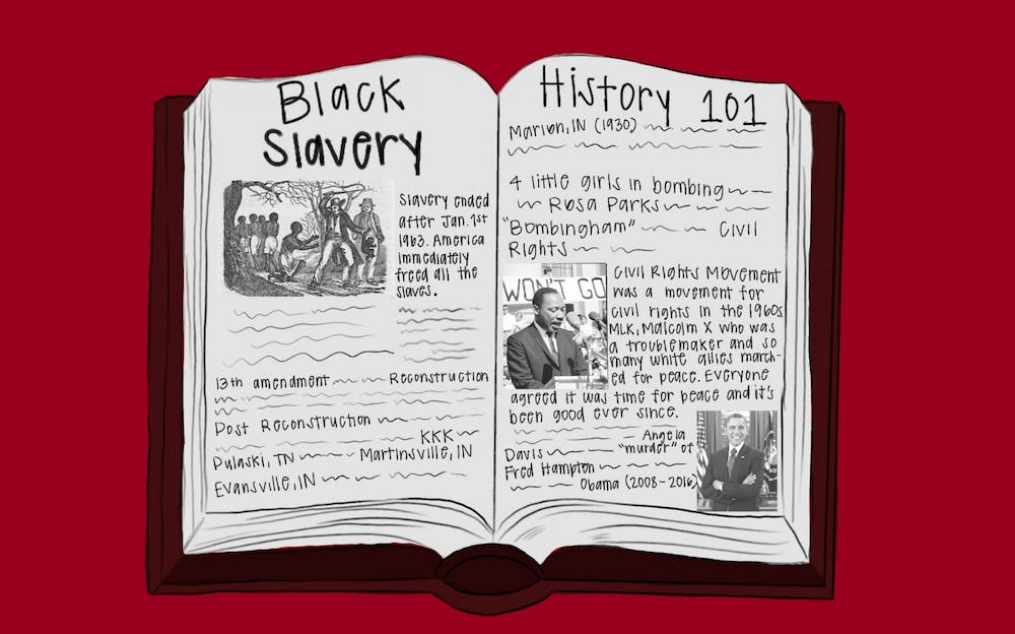 Black
Slavery
Slavery ended
after Jan. 1st
1963. America
immediately
freed all the
slaves.
13th amendment Reconstruction
Post Reconstruction
KKK
Pulaski, TN Martinsville, IN
Evansville, IN
History 101
Marion, IN (1930)
4 little girls in bombing
Rosa Parks
"Bombingham" Civil
Rights
WON'T GO
Civil Rights Movement
was a movement for
civil rights in the 1960s
MLK, Malcolm X who was
a troublemaker and so
many white allies march-
ed for peace. Everyone
agreed it was time for peace and it's
been good ever since.
Angela
Davis "murder" of
Fred Hampton
Obama (2008-2016)